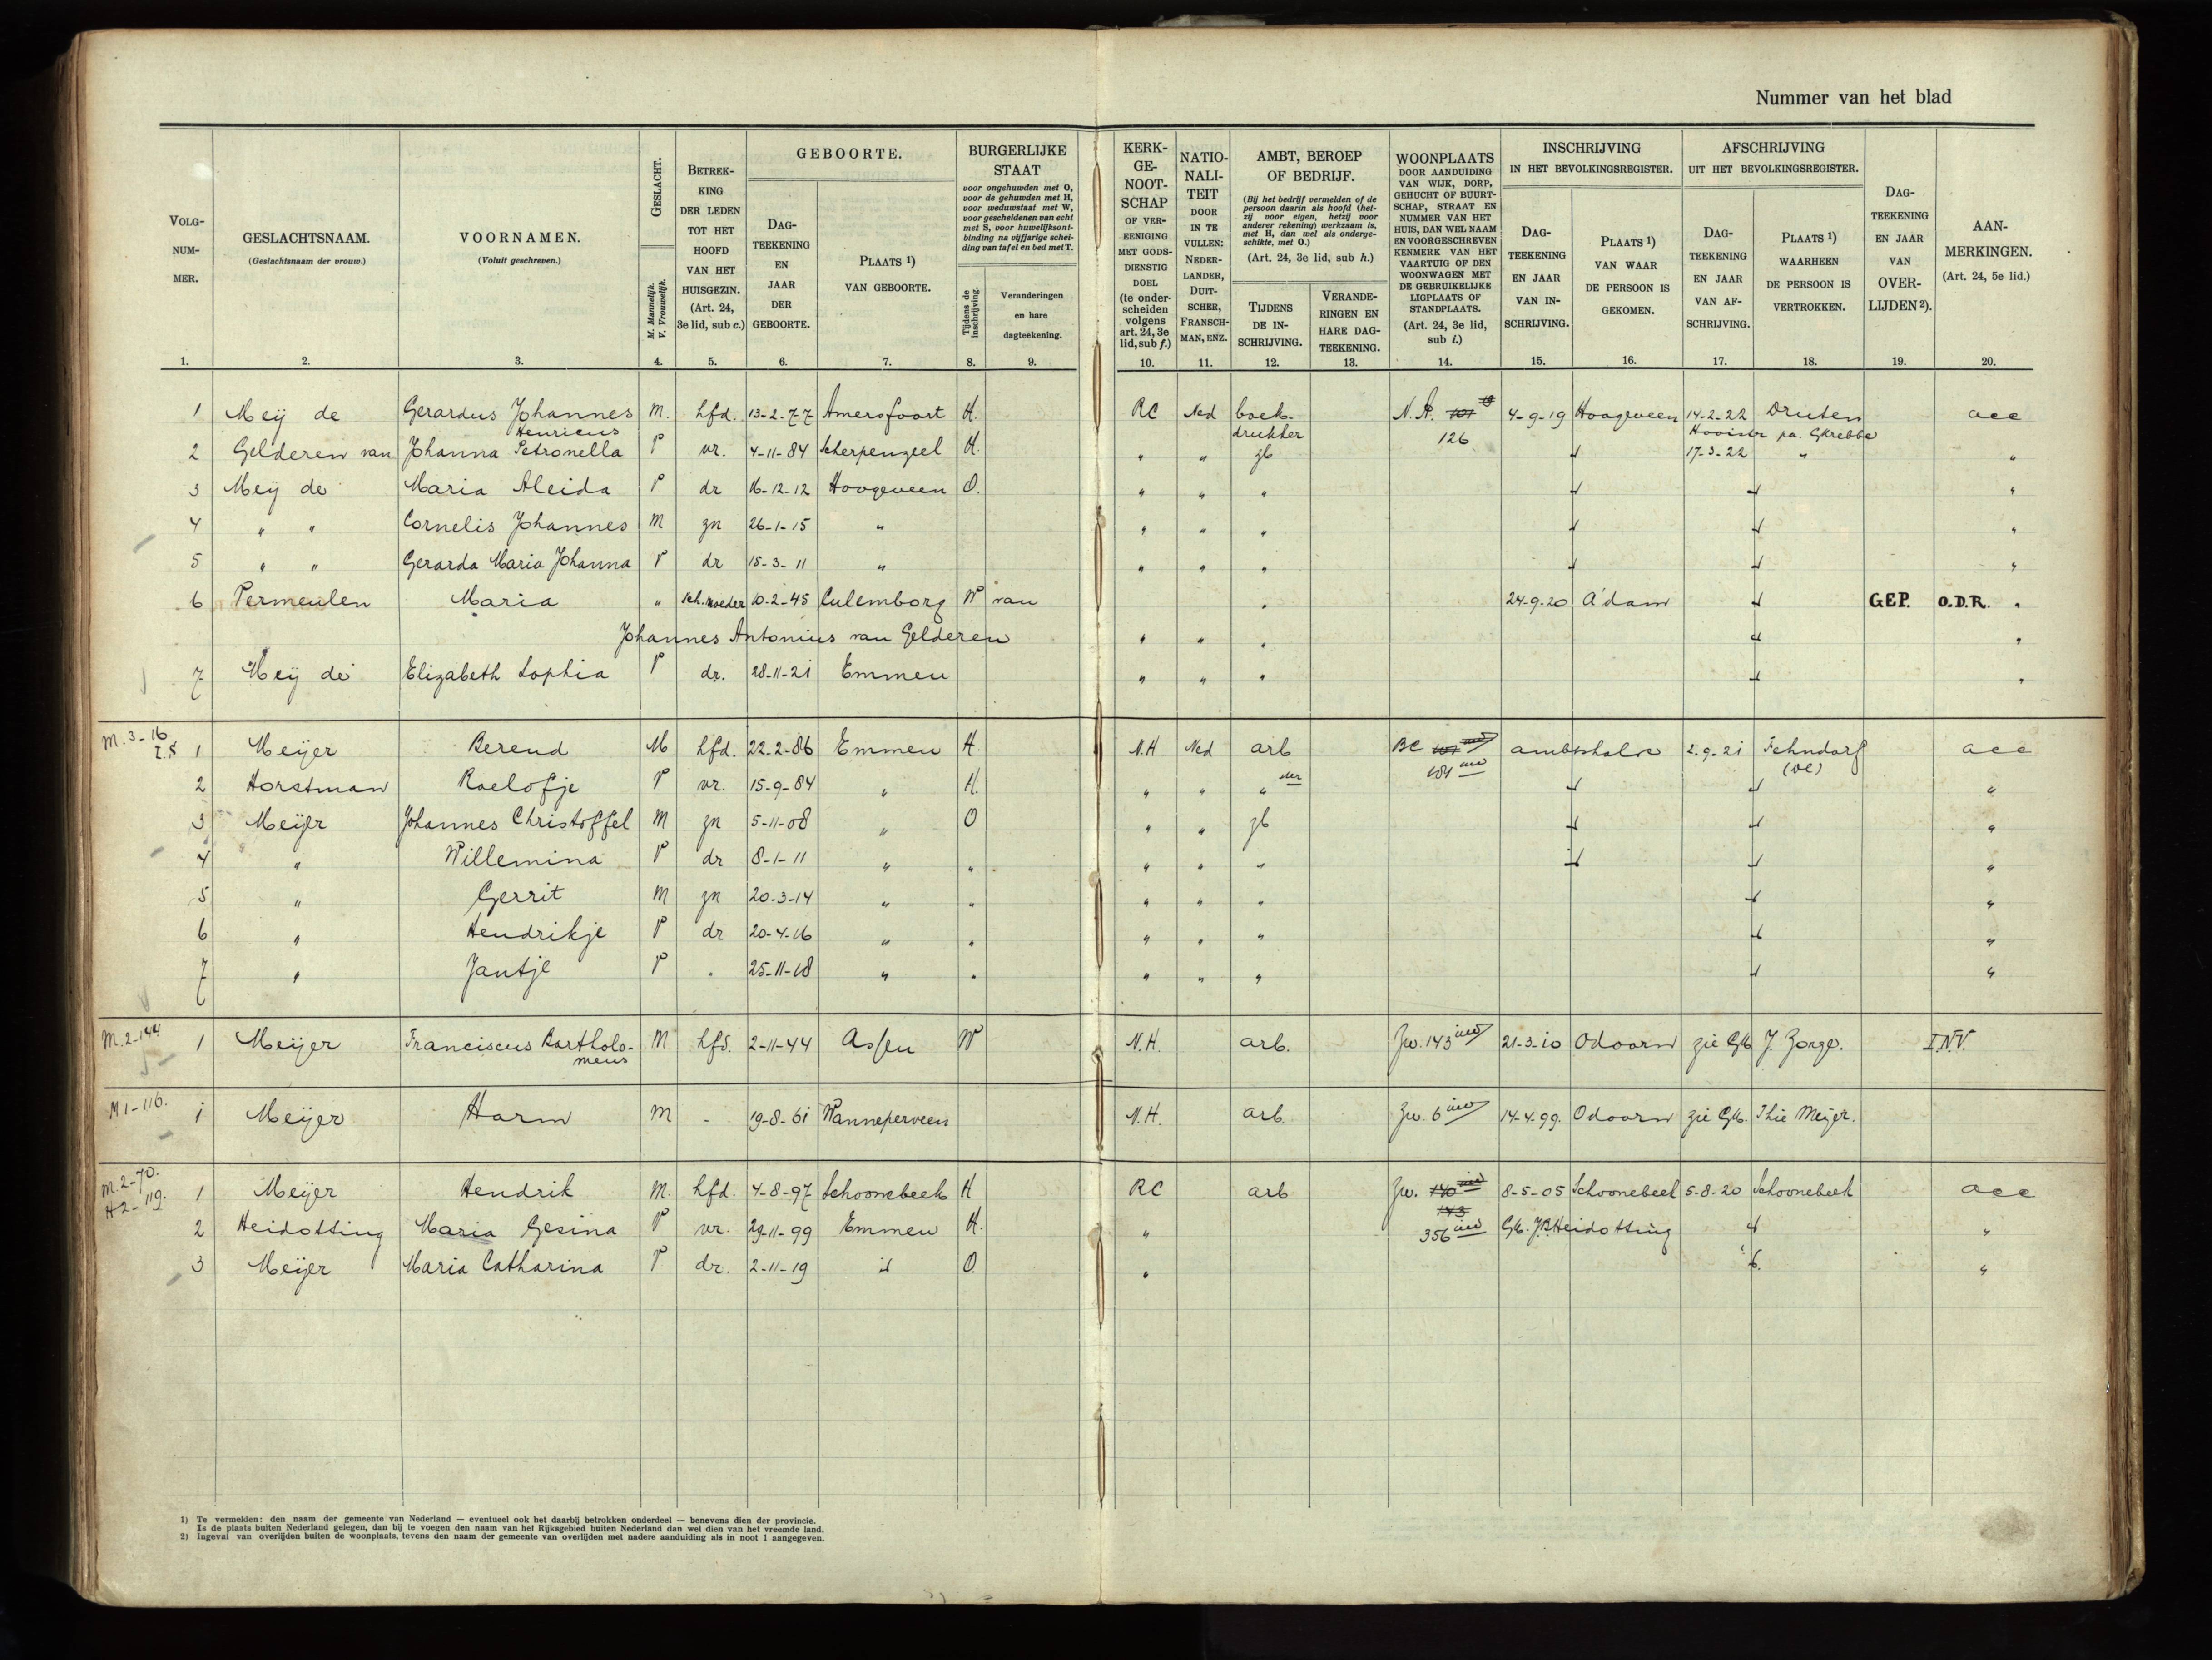 Nummer van het blad
VOLG-NUM-MER.
GESLACHTSNAAM.
(Geslachtsnaam der vrouw.)
VOORNAMEN.
(Voluit geschreven.)
GESLACHT.
M. Mannelijk.
V. Vrouwelijk.
BETREK-KING DER LEDEN TOT HET HOOFD VAN HET HUISGEZIN.
(Art. 24, 3e lid, sub c.)
GEBOORTE.
DAG-TEEKENING EN JAAR DER GEBOORTE.
PLAATS 1) VAN GEBOORTE.
BURGERLIJKE STAAT
voor ongehuwden met O,
voor de gehuwden met H,
voor weduwstaat met W,
voor gescheidenen van echt
met S, voor huwelijksont-
binding na vijfjarige schei-
ding van tafel en bed met T.
Tijdens de inschrijving.
Veranderingen en hare dagteekening.
KERK-GE-NOOT-SCHAP
OF VER-EENIGING MET GODS-DIENSTIG DOEL
(te onder-scheiden volgens art. 24, 3e lid, sub f.)
NATIO-NALI-TEIT
DOOR IN TE VULLEN: NEDER-LANDER, DUIT-SCHER, FRANSCH-MAN, ENZ.
AMBT, BEROEP OF BEDRIJF.
(Bij het bedrijf vermelden of de
persoon daarin als hoofd (het-
zij voor eigen, hetzij voor
anderer rekening) werkzaam is,
met H, dan wel als onderge-
schikte, met O.)
(Art. 24, 3e lid, sub h.)
TIJDENS DE IN-SCHRIJVING.
VERANDE-RINGEN EN HARE DAG-TEEKENING.
WOONPLAATS
DOOR AANDUIDING
VAN WIJK, DORP,
GEHUCHT OF BUURT-
SCHAP, STRAAT EN
NUMMER VAN HET
HUIS, DAN WEL NAAM
EN VOORGESCHREVEN
KENMERK VAN HET
VAARTUIG OF DEN
WOONWAGEN MET
DE GEBRUIKELIJKE
LIGPLAATS OF
STANDPLAATS.
(Art. 24, 3e lid, sub i.)
INSCHRIJVING
IN HET BEVOLKINGSREGISTER.
DAG-TEEKENING EN JAAR VAN IN-SCHRIJVING.
PLAATS 1) VAN WAAR DE PERSOON IS GEKOMEN.
AFSCHRIJVING
UIT HET BEVOLKINGSREGISTER.
DAG-TEEKENING EN JAAR VAN AF-SCHRIJVING.
PLAATS 1) WAARHEEN DE PERSOON IS VERTROKKEN.
DAG-TEEKENING EN JAAR VAN OVER-LIJDEN 2).
AAN-MERKINGEN.
(Art. 24, 5e lid.)
1. 2. 3. 4. 5. 6. 7. 8. 9. 10. 11. 12. 13. 14. 15. 16. 17. 18. 19. 20.
1 Meij de Gerardus Johannes Henricus M. hfd. 13-2-77 Amersfoort H. RC Ned boek-drukker N.A. 101 126 4-9-19 Hoogeveen 14-2-22 Druten acc
2 Gelderen van Johanna Petronella V vr. 4-11-84 Scherpenzeel H. " " zb 17-3-22 " "
3 Meij de Maria Aleida V dr 16-12-12 Hoogeveen O. " " " "
4 " " Cornelis Johannes M zn 26-1-15 " " " " "
5 " " Gerarda Maria Johanna V dr 15-3-11 " " " " "
6 Vermeulen Maria " sch.moeder 10-2-45 Culemborg W van " 24-9-20 A'dam GEP. O.D.R. "
Johannes Antonius van Gelderen " " " "
7 Meij de Elizabeth Sophia V dr. 28-11-21 Emmen " " " "
M. 3-16
1 Meijer Berend M hfd. 22-2-86 Emmen H. N.H Ned arb BC 101 181 ambtshalve 2-9-21 Fehndorf acc
2 Horstman Roelofje V vr. 15-9-84 " H. " " " "
3 Meijer Johannes Christoffel M zn 5-11-08 " O " " zb "
4 " Willemina V dr 8-1-11 " " " " " "
5 " Gerrit M zn 20-3-14 " " " " " "
6 " Hendrikje V dr 20-4-16 " " " " " "
7 " Jantje V " 25-11-18 " " " " " "
M.2-144
1 Meijer Franciscus Bartholo-meus M hfd. 2-11-44 Assen W N.H. arb. Zw. 143 21-3-10 Odoorn zie Gk J. Zorge. I.N.V.
M 1-116.
1 Meijer Harm M - 19-8-61 Wanneperveen N.H. arb. Zw. 6 14-4-99. Odoorn zie Gk. Thie Meijer.
M.2-70.
H2-119.
1 Meijer Hendrik M. hfd. 4-8-97 Schoonebeek H RC arb Zw. 140 143 8-5-05 Schoonebeek 5-8-20 Schoonebeek acc
2 Heidotting Maria Gesina V vr. 29-11-99 Emmen H. " 356 Gk. J.B. Heidotting "
3 Meijer Maria Catharina V dr. 2-11-19 id O. " "
1) Te vermelden: den naam der gemeente van Nederland — eventueel ook het daarbij betrokken onderdeel — benevens dien der provincie.
Is de plaats buiten Nederland gelegen, dan bij te voegen den naam van het Rijksgebied buiten Nederland dan wel dien van het vreemde land.
2) Ingeval van overlijden buiten de woonplaats, tevens den naam der gemeente van overlijden met nadere aanduiding als in noot 1 aangegeven.